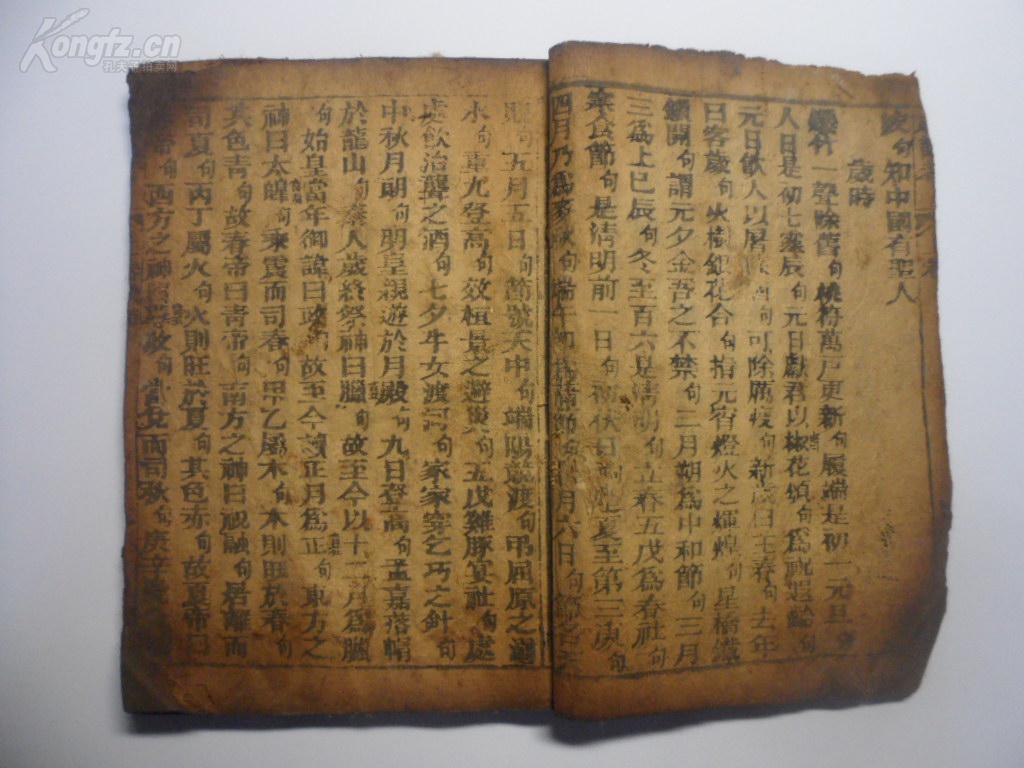 波句知中國有聖人
歲時
爆竹一聲除舊句桃符萬戶更新句履端是初一元旦句
人日是初七靈辰句元日獻君以椒花頌句為祝遐齡句
元日飲人以屠 句可除厲疫句新歲曰王春句去年
曰客歲句火樹銀花合句指元宵燈火之煇煌句星橋鐵
鎖開句謂元夕金吾之不禁句二月朔為中和節句三月
三為上巳辰句冬至百六是清明句立春五戊為春社句
寒食節句是清明前一日句初伏日句是夏至第三庚句
四月乃為麥秋句端午卻為蒲節句六月六日句節名天
貺句五月五日句節號天中句端陽競渡句弔屈原之溺
水句重九登高句效桓景之避災句五戊雞豚宴社句處
處飲治聾之酒句七夕牛女渡河句家家穿乞巧之針句
中秋月明句明皇親遊於月殿句九日登高句孟嘉落帽
於龍山句秦人歲終祭神曰臘句故至今以十二月為臘
句始皇當年御諱曰政句故至今讀正月為正句東方之
神曰太皥句乘震而司春句甲乙屬木句木則旺於春句
其色青句故春帝曰青帝句南方之神曰祝融句居離而
司夏句丙丁屬火句火則旺於夏句其色赤句故夏帝曰
句西方之神曰蓐收句當兌而司秋句庚辛
Kongfz.cn
孔夫子拍卖网